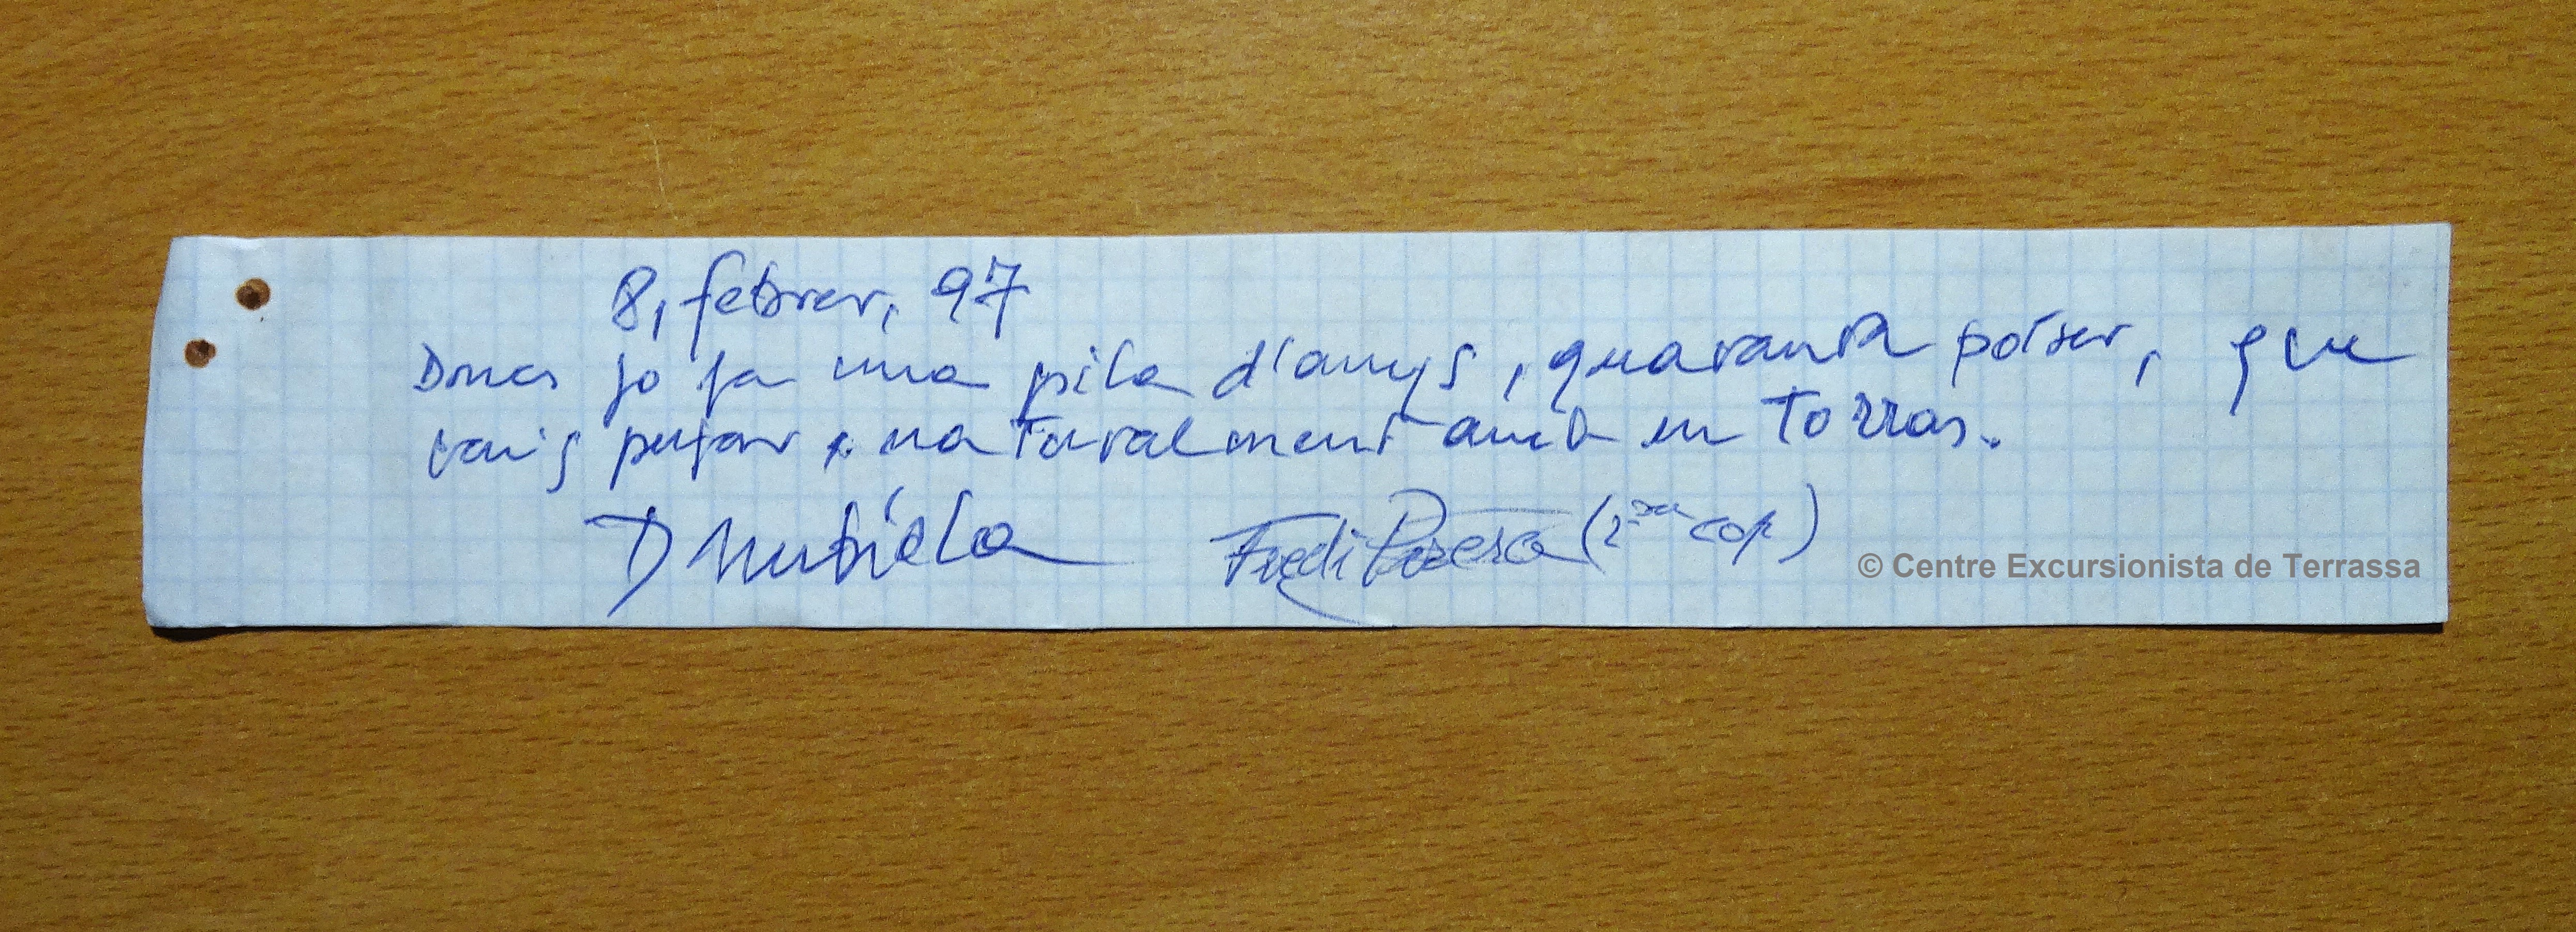 8, febrer, 97
Doncs jo fa una pila d'anys, quaranta pótser, que
vaig pujar, naturalment amb en Torras.
D Mubiela Fredi Parera (2ª cop)
© Centre Excursionista de Terrassa